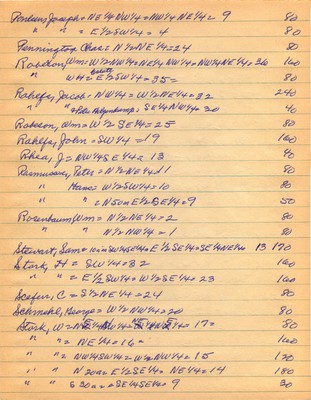 Perkins Joseph = NE¼NW¼ = NW¼NE¼ = 9 80
" " = E½SW¼ = 4 80
Pennington Chas = N½NE¼ = 24 80
Roberson, Wm = W½NW¼ = NE¼NW¼ = NW¼NE¼ = 36 160
" WH = E½SW¼ = 35 = 80
Rahefs, Jacob = NW¼ = W½NE¼ = 32 240
" " SE¼NW¼ = 30 40
Roberson, Wm = W½SE¼ = 25 80
Rahefs, John = SW¼ = 19 160
Rhea, J = NW¼SE¼ = 13 40
Rasmussen, Peter = N½NE¼ = 11 80
" Hans = W½SW¼ = 10 80
" = N50a = E½SE¼ = 9 50
Rosenbaum Wm = N½NE¼ = 2 80
" N½NW¼ = 1 80
Stewart, Sam = 10a in SW¼SE¼ = E½SE¼ = SE¼NE¼ 13 170
Stork, H = SW¼ = 32 160
" " = E½SW¼ = W½SE¼ = 23 160
Scefin, C = S½NE¼ = 24 80
Schmehl, George = W½NW¼ = 20 80
Stork, W = = 17 = 80
" " = NE¼ = 16 = 160
" " = NW¼SW¼ = W½NW¼ = 15 120
" " N 20a = E½SE¼ = NE¼ = 14 180
" " S 30a = SE¼SE¼ = 9 30